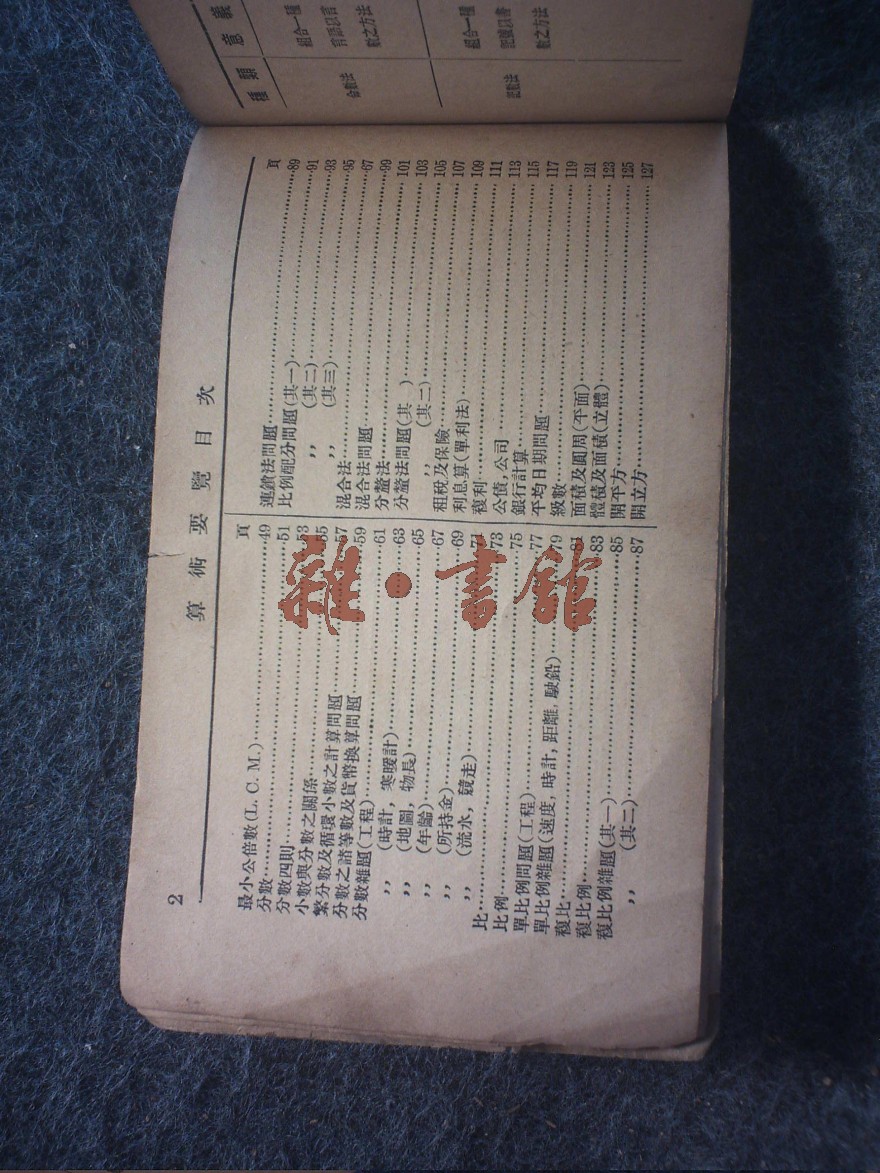 種類 意義
命數法 組合一種
言語以言
數之方法
記數法 組合一種
記號以書
數之方法
2 算術要覽目次
頁
最小公倍數(L. C. M.)……49
分數……51
分數四則……53
小數與分數之關係……55
繁分數及循環小數之計算問題……57
分數之諸等數及貨幣換算問題……59
分數雜題(工程)……61
,, (時計, 寒暖計)……63
,, (地圖, 物長)……65
,, (年齡)……67
,, (所持金)……69
,, (流水, 競走)……71
比……73
比例……75
單比例問題(工程)……77
單比例雜題(速度, 時計, 距離, 駛船)……79
複比……81
複比例……83
複比例雜題(其一)……85
,, (其二)……87
頁
連鎖法問題……89
比例配分問題(其一)……91
,, (其二)……93
,, (其三)……95
混合法……67
混合法問題……99
分釐法……101
分釐法問題(其 )……103
,, (其二)……105
租稅及保險……107
利息算(單利法)……109
複利……111
公債, 公司……113
銀行計算……115
平均日期問題……117
級數……119
面積及圓周(平面)……121
體積及面積(立體)……123
開平方……125
開立方……127
雜·書館